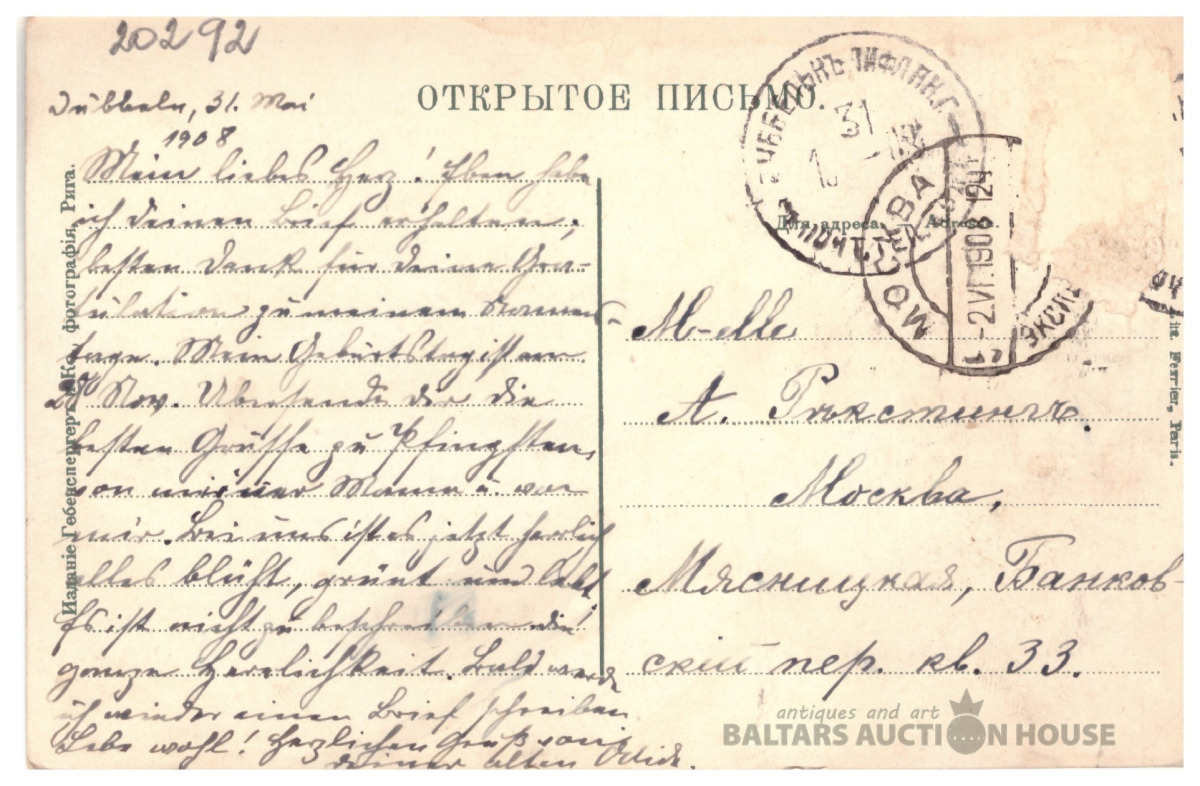 20292
ОТКРЫТОЕ ПИСЬМО.
Dubbeln, 31. Mai
1908
Mein liebes Herz! Eben habe
ich deinen Brief erhalten,
besten Dank für deine Gra-
tulation zu meinem Namens-
tage. Mein Geburtstag ist am
Nov. Übersende dir die
besten Grüsse zu Pfingsten,
von meiner Mama u. von
mir. Bei uns ist es jetzt herrlich
alles blüht, grünt und lebt
Es ist nicht zu beschreiben die
ganze Herrlichkeit. Bald werde
ich wieder einen Brief schreiben
Lebe wohl! Herzlichen Gruß von
deiner alten
Изданіе Гебенспергеръ и Ко. фотографія, Рига.
31
Для адреса. Adresse.
МОСКВА
-2.VI.1908
ЭКСП
M-elle
А. Рѣкстингъ.
Москва,
Мясницкая, Банков-
скій пер. кв. 33.
Lit. Ferrier, Paris.
antiques and art
BALTARS AUCTION HOUSE